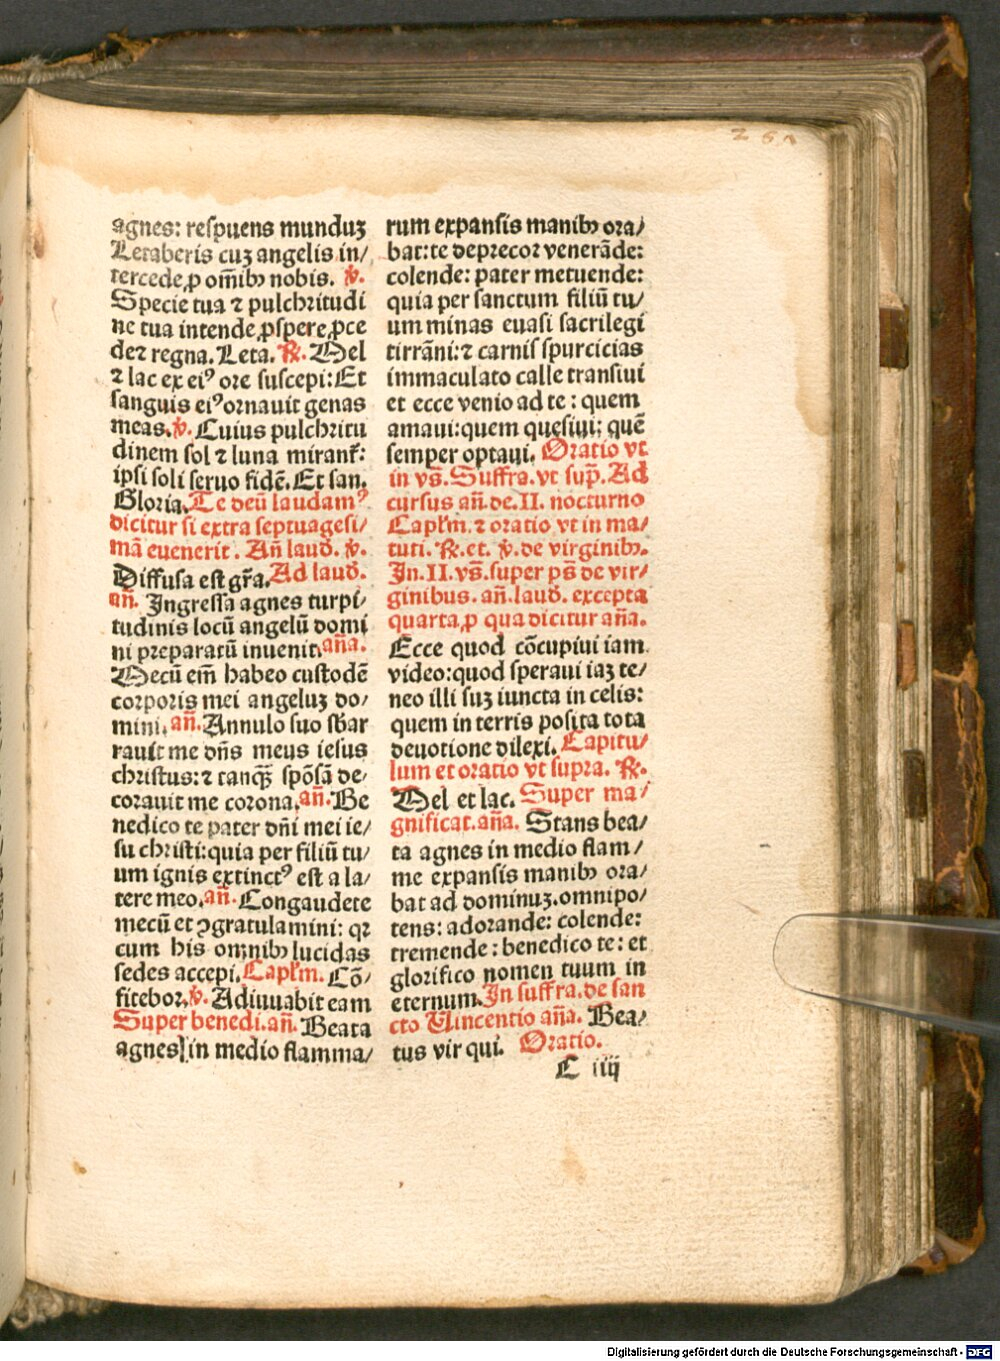 260
agnes: respuens munduȝ
Letaberis cuȝ angelis in/
tercede ꝓ om̄ibꝰ nobis. ℣.
Specie tua ⁊ pulchritudi
ne tua intende ꝓspere ꝓce
de⁊ regna. Leta. ℟. Mel
⁊ lac ex eiꝰ ore suscepi: Et
sanguis eiꝰ ornauit genas
meas. ℣. Cuius pulchritu
dinem sol ⁊ luna mirant᷑:
ipsi soli seruo fidē. Et san.
Gloria. Te deū laudamꝰ
dicitur si extra septuagesi/
mā euenerit. Añ laud. ℣.
Diffusa est gr̄a. Ad laud.
añ. Ingressa agnes turpi/
tudinis locū angelū domi
ni preparatū inuenit. aña.
Mecū em̄ habeo custodē
corporis mei angeluȝ do/
mini. añ. Annulo suo sbar
rauit me dñs meus iesus
christus: ⁊ tanqȝ spōsā de/
corauit me corona. añ. Be
nedico te pater dñi mei ie/
su christi: quia per filiū tu/
um ignis extinctꝰ est a la/
tere meo. añ. Congaudete
mecū et ꝯgratulamini: qꝛ
cum his omnibꝰ lucidas
sedes accepi. Capl'm. Cō/
fitebor. ℣. Adiuuabit eam
Super benedi. añ. Beata
agnes in medio flamma/
rum expansis manibꝰ ora/
bat: te deprecor venerāde:
colende: pater metuende:
quia per sanctum filiū tu/
um minas euasi sacrilegi
tirrāni: ⁊ carnis spurcicias
immaculato calle transiui
et ecce venio ad te: quem
amaui: quem quesiui: quē
semper optaui. Oratio vt
in vs̄. Suffra. vt sup̄. Ad
cursus añ. de. II. nocturno
Capl'm. ⁊ oratio vt in ma/
tuti. ℟. et. ℣. de virginibꝰ.
In. II. vs̄. super ps̄ de vir/
ginibus. añ. laud. excepta
quarta ꝓ qua dicitur aña.
Ecce quod cōcupiui iam
video: quod speraui iaȝ te/
neo illi suȝ iuncta in celis:
quem in terris posita tota
deuotione dilexi. Capitu/
lum et oratio vt supra. ℟.
Mel et lac. Super ma/
gnificat. aña. Stans bea/
ta agnes in medio flam/
me expansis manibꝰ ora/
bat ad dominuȝ. omnipo/
tens: adorande: colende:
tremende: benedico te: et
glorifico nomen tuum in
eternum. In suffra. de san
cto Vincentio aña. Bea/
tus vir qui. Oratio.
C iiij
Digitalisierung gefördert durch die Deutsche Forschungsgemeinschaft - DFG